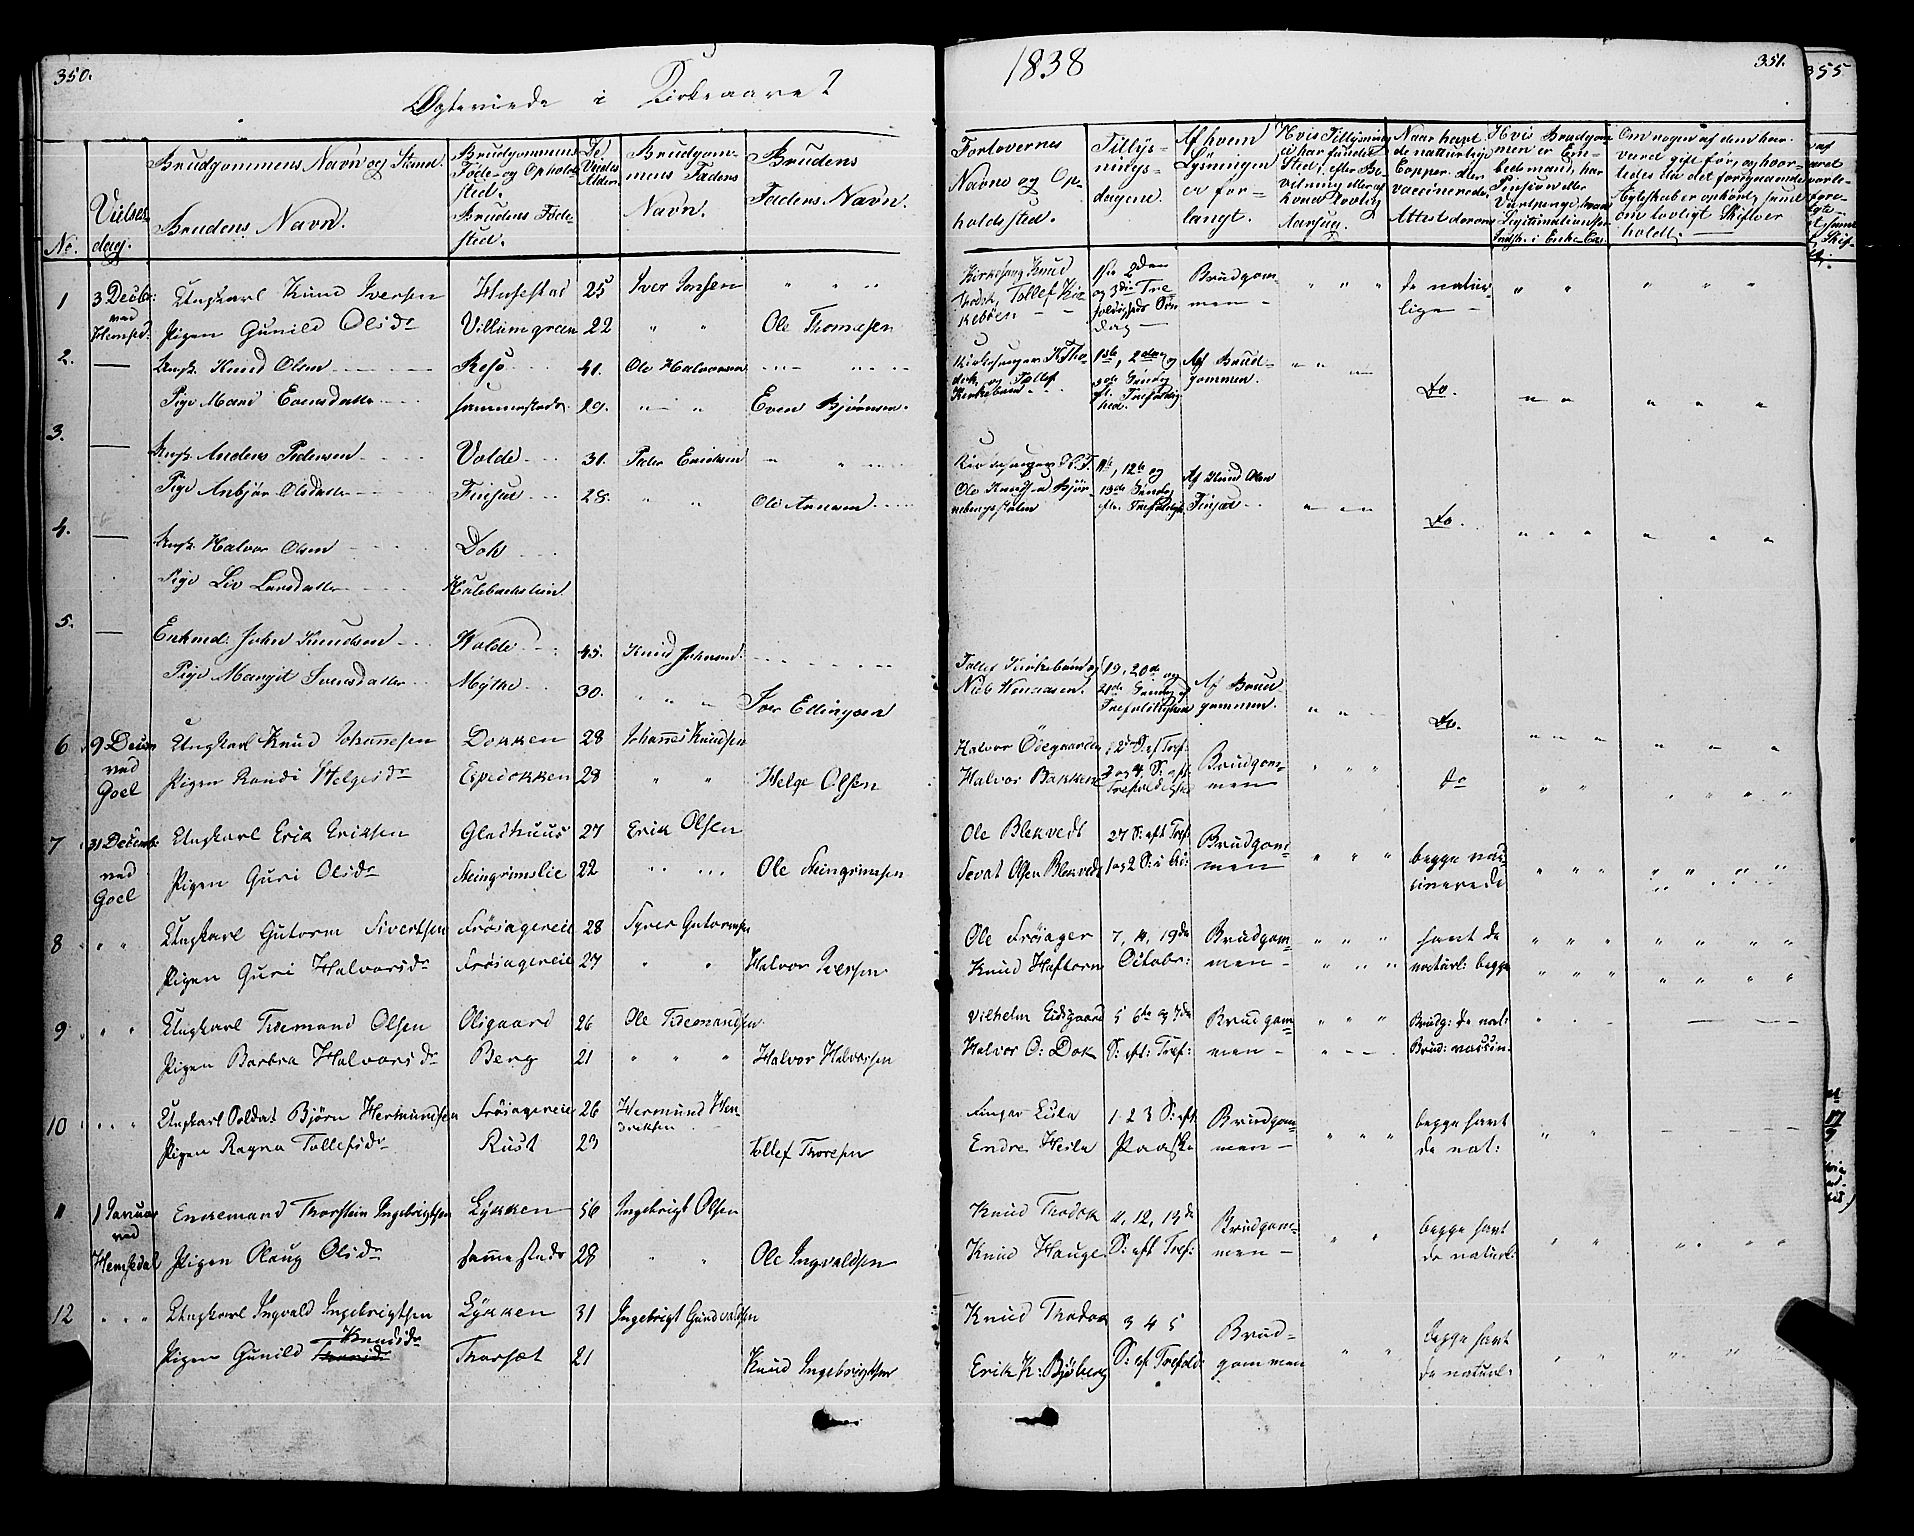 350.
Ægteviede i Kirkeaaret
No.
Vielses
dag.
Brudgommens Navn og Stand.
Brudens Navn.
Brudgommens
Føde- og Opholds
sted.
Brudens Føde-
sted.
De
Viedes
Alder.
Brudgom-
mens Faders
Navn.
Brudens
Faders Navn.
1 3 Decbr: Ungkarl Knud Iversen Husestad 25 Iver Jonsen " " "
ved
Hemsed: Pigen Gunild Olsdr Villumgreen 22 " " Ole Thomesen
2. — Ungk. Knud Olsen Resø 41. Ole Halvorsen
Pige Mari Evensdatter sammesteds 29. " " Even Bjørnsen.
3. — Ungk. Anders Pedersen Volde 31. Peder Ericksen
Pige Anbjør Olsdatter Finset 28. " " Ole Arnesen
4. — Ungk. Halvor Olsen Dok
Pige Liv Larsdatter Hulebachslien
5. — Enkmd: John Knudsen Wolde 45. Knud Johnsen.
Pige Margit Iversdatter Mythe 30. " " " Iver Ellingsen
6 9 Decem Ungkarl Knud Johannesen Dokken 28 Johannes Knudsen
ved
Goel Pigen Randi Helgesdr Espedokken 28 " " Helge Olsen
7 31 Decemb: Ungkarl Erik Eriksen Gladhuus 27 Erik Olsen
ved
Goel Pigen Guri Olsdr Steingrimslie 22 Ole Steingrimsen
8 " " Ungkarl Gutorm Sivertsen Frøisagereie 28 Syver Gutormsen
Pigen Guri Halvorsdr Frøisagereie 27 " " Halvor Iversen
9 " " Ungkarl Tidemand Olsen Olsgaard 26 Ole Tidemandsen
Pigen Barbra Halvorsdr Berg 21 " " " Halvor Halvorsen
10 " " " Ungkarl Soldat Bjørn Hermundsen Frøisagereie 26 Hermund Hen
driksen
Pigen Ragna Tollefsdr Rust 23 Tollef Thoresen
11 1 Januar Enkemand Thorstein Ingebrigtsen Lykken 56 Ingebrigt Olsen
ved
Hemsedal Pigen Olaug Olsdr sammesteds 28 " " Ole Ingvaldsen
12 " " " Ungkarl Ingvald Ingebrigtsen Lykken 31 Ingebrigt Gundvaldsen
Knudsdr
Pigen Gunild Thorset 21 Knud Ingebrigtsen
1838
351.
Forlovernes
Navne og Op-
holdssted.
Tillys-
nings-
dagene.
Af hvem
Lysningen
er for-
langt.
Hvis Tillysning
ei har fundet
Sted, efter Be-
vilning eller af
hvad lovlig
Aarsag.
Naar havt
de naturlige
Copper eller
vaccinerede,
Attest derom
Hvis Brudgom-
men er Em-
bedsmand, har
Pension eller
Vartpenge, hvad
Legitimation for
Indsk. i Enke Cas.
Om nogen af dem har
været gift før, og hvor-
ledes da det foregaaende
Egteskab er ophørt, samt
om lovligt Skifte er
holdt.
Kirkesang Knud
Thodok, Tollef Kir-
kebøen
1ste 2den
og 3die Tre-
foldigheds Søn
dag
Brudgom-
men
de natur-
lige
Kirkesanger K. Tho-
dok, og Tollef
Kirkebøen
1ste, 2den og
3de Søndag
ef. Trefoldig
hed.
Af Brud-
gommen.
Do.
Kirkesanger K. T.
Ole Knudsen Bjør-
nebergsstølen
11te, 12te og
13de Søndag
efter Trefoldigh
Af Knud Olsen
Finset
Do.
Tollef Kirkebøen og
Niels
19, 20de og
21de Søndag ef
Trefoldigheden
Af Brud
gommen.
Do.
Halvor Ødegaarden
Halvor Bakkene
2den S: ef Tref:
3 og 4, S: eft.
Trefoldighed
Brudgom-
men
do
Ole Blekvedt
Sevat Olsen Blekvedt
27 S: eft Tref
1 og 2 S: i
Brudgom-
men
begge vac-
sinerede
Ole Frøisager
Knud Haftorn
7, 14, 19de
Octobr:
Brudgom-
men
havt de
naturl: begge
Vilhelm Eidsgaard
Halvor O: Dok
5 6te og 7de
S: eft: Tref:
Brudgom-
men
Brudg: de nat:
Brud: vaccin.
Lula
Endre Heslo
1 2 3 S: eft
Paaske
Brudgom-
men
begge havt
de nat:
Knud Thodok
Knud Hauge
11, 12, 13de
S: eft Tref:
Brudgom-
men
begge havt
de naturl:
Knud Thodok
Erik K: Bjøberg
3 4 5
S: ef Trefold:
Brud-
gommen
begge havt
de naturl:
355